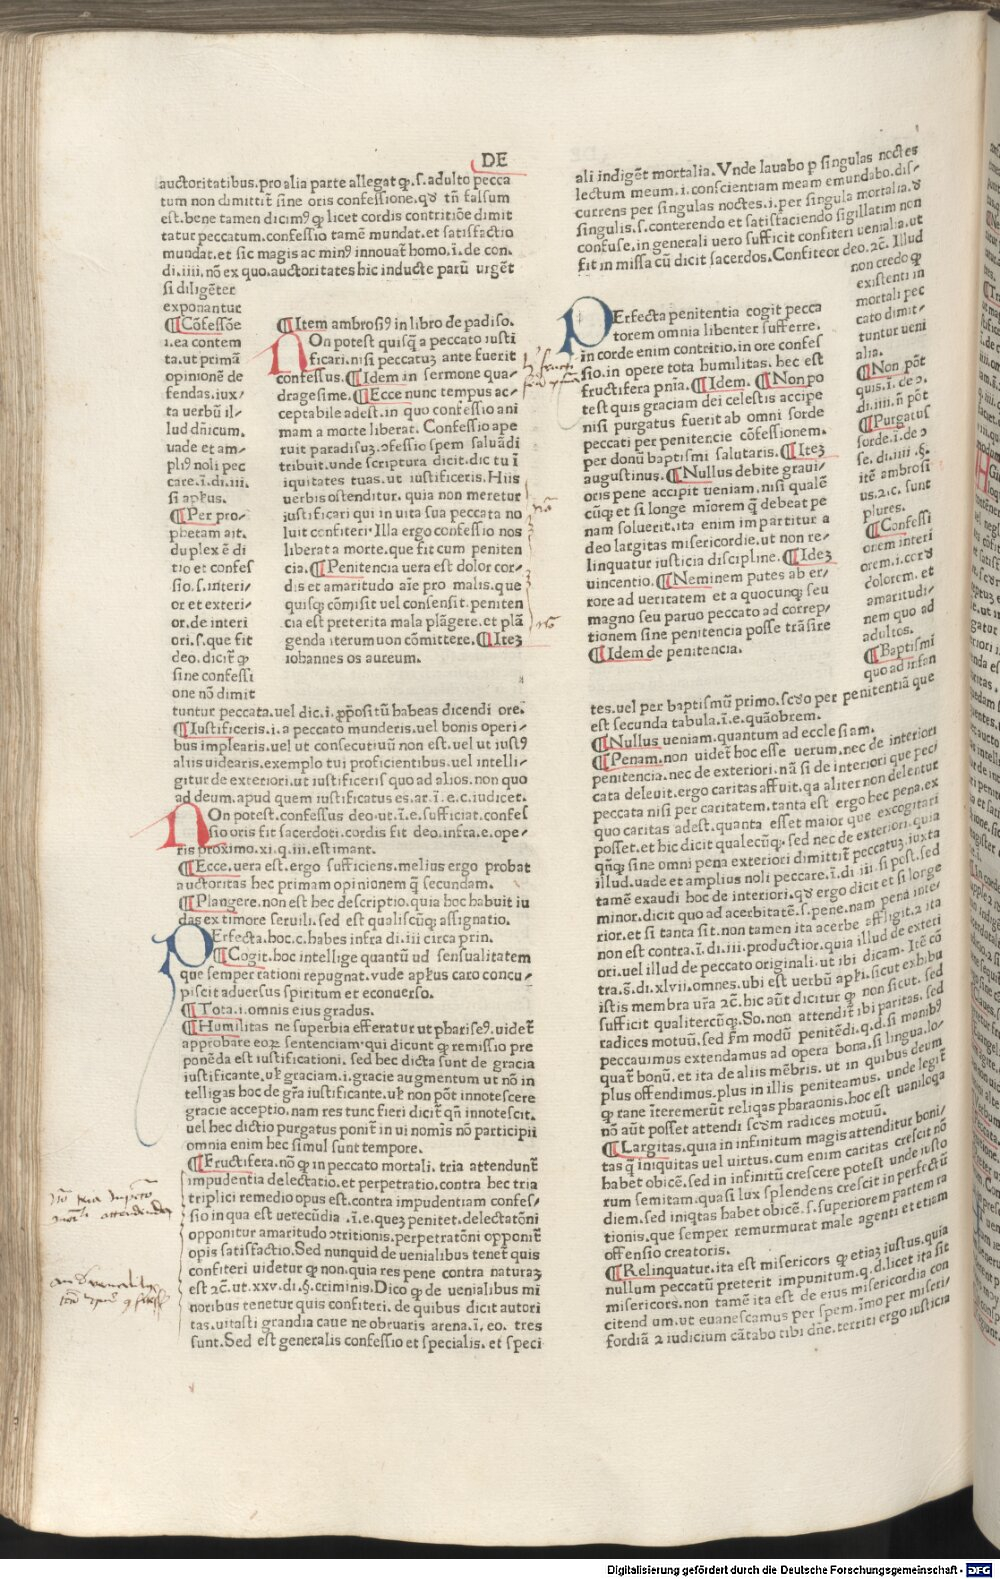 DE
auctoritatibus.pro alia parte allegat ꝙ.s.adulto pecca
tum non dimittit̃ sine oris confessione.qđ tñ falsum
est.bene tamen dicimꝰ ꝙ licet cordis contritiõe dimit
tatur peccatum.confessio tamẽ mundat.et satisfactio
mundat.et sic magis ac minꝰ innouat̃ homo.ĩ.de con.
di.iiii.nõ ex quo.auctoritates hic inducte parũ urgẽt
si diligẽter
exponantur
¶Cõfessiõe
.i.ea contem
ta.ut primã
opinionẽ de
fendas.iux⸗
ta uerbũ il⸗
lud dñicum.
uade et am⸗
pliꝰ noli pec
care.ĩ.di.iii.
si apłus.
¶Per pro⸗
phetam ait.
duplex ẽ di
tio et confes
sio.s.interi⸗
or et exteri⸗
or.de interi
ori.s.que fit
deo.dicit̃ ꝙ
sine confessi
one nõ dimit
¶Item ambrosiꝰ in libro de padiso.
NOn potest quisꝗ a peccato iusti
ficari.nisi peccatuꝫ ante fuerit
confessus.¶Idem in sermone qua⸗
dragesime.¶Ecce nunc tempus ac⸗
ceptabile adest.in quo confessio ani
mam a morte liberat. Confessio ape
ruit paradisuꝫ.ɔfessio spem saluãdi
tribuit.unde scriptura dicit.dic tu ĩ
iquitates tuas.ut iustificeris.Hiis
uerbis ostenditur. quia non meretur
iustificari qui in uita sua peccata no
luit confiteri·Illa ergo confessio nos
liberat a morte.que fit cum peniten
cia.¶Penitencia uera est dolor cor⸗
dis et amaritudo aĩe pro malis.que
quisꝗ cõmisit uel consensit.peniten
cia est preterita mala plãgere.et plã
genda iterum non cõmittere.¶Iteꝫ
iohannes os aureum.
tuntur peccata.uel dic.i.ꝓpositũ habeas dicendi ore.
¶Iustificeris.i.a peccato munderis.uel bonis operi⸗
bus implearis.uel ut consecutiuũ non est.uel ut iustꝰ
aliis uidearis.exemplo tui proficientibus.uel intelli⸗
gitur de exteriori.ut iustificeris quo ad alios.non quo
ad deum.apud quem iustificatus es.ar.ĩ.e.c.iudicet.
NOn potest.confessus deo.ut.ĩ.e.sufficiat.confes
sio oris fit sacerdoti.cordis fit deo.infra.e.ope⸗
ris proximo.xi.q.iii.estimant.
¶Ecce.uera est.ergo sufficiens.melius ergo probat
auctoritas hec primam opinionem ꝗ secundam.
¶Plangere.non est hec descriptio.quia hoc habuit iu
das ex timore seruili.sed est qualiscũꝗ assignatio.
PErfecta.hoc.c.habes infra di.iii circa prin.
¶Cogit.hoc intellige quantũ ad sensualitatem
que semper rationi repugnat.vude apłus caro concu⸗
piscit aduersus spiritum et econuerso.
¶Tota.i.omnis eius gradus.
¶Humilitas ne superbia efferatur ut phariseꝰ.uidet̃
approbare eoꝝ sentenciam·qui dicunt ꝙ remissio pre
ponẽda est iustificationi. sed hec dicta sunt de gracia
iustificante.uł graciam.i.gracie augmentum ut nõ in
telligas hoc de gr̃a iustificante.uł non põt innotescere
gracie acceptio.nam res tunc fieri dicit̃ qñ innotescit.
uel hec dictio purgatus ponit̃ in ui nomĩs nõ participii
omnia enim hec simul sunt tempore.
¶Fructifera.nõ ꝙ in peccato mortali. tria attendunt̃
impudentia delectatio.et perpetratio.contra hec tria
triplici remedio opus est.contra impudentiam confes⸗
sio in qua est uerecũdia .ĩ.e.queꝫ penitet.delectatõni
opponitur amaritudo ɔtritionis.perpetratõni opponit̃
opis satisfactio.Sed nunquid de uenialibus tenet̃ quis
confiteri uidetur ꝙ non.quia res pene contra naturaꝫ
est ⁊c̃.ut.xxv.di.§.criminis.Dico ꝙ de uenialibus mi
noribus tenetur quis confiteri. de quibus dicit autori
tas.uitasti grandia caue ne obruaris arena.ĩ.eo. tres
sunt.Sed est generalis confessio et specialis. et speci
ali indigẽt mortalia. Vnde lauabo p singulas noctes
lectum meum.i.conscientiam meam emundabo.dis⸗
currens per singulas noctes.i.per singula mortalia.⁊
singulis.s.conterendo et satisfaciendo sigillatim non
confuse.in generali uero sufficit confiteri uenialia.ut
fit in missa cũ dicit sacerdos.Confiteor deo.⁊c̃. Illud
non credo ꝙ
existenti in
mortali pec
cato dimit⸗
tuntur ueni
alia.
¶Non põt
quis.ĩ.de ɔ.
di.iiii.ñ põt
¶Purgatus
sorde.ĩ.de ɔ
se.di.iiii.§.
itẽ ambrosi
us.⁊.c. sunt
plures.
¶Confessi
onem interi
orem.i.corđ
dolorem. et
amaritudi⸗
nem quo ad
adultos.
¶Baptismi
quo ad infan
PErfecta penitentia cogit pecca
torem omnia libenter sufferre.
in corde enim contritio.in ore confes
sio.in opere tota humilitas. hec est
fructifera pnĩa.¶Idem. ¶Non po
test quis graciam dei celestis accipe
nisi purgatus fuerit ab omni sorde
peccati per penitencie cõfessionem.
per donũ baptismi salutaris.¶Iteꝫ
augustinus.¶Nullus debite graui⸗
oris pene accipit ueniam.nisi qualẽ
cũꝗ et si longe miorem ꝗ debeat pe
nam soluerit.ita enim impartitur a
deo largitas misericordie.ut non re⸗
linquatur iusticia discipline.¶Ideꝫ
uincentio.¶Neminem putes ab er⸗
rore ad ueritatem et a quocunꝗ seu
magno seu paruo peccato ad correp⸗
tionem sine penitencia posse trãsire
¶Idem de penitencia.
tes.uel per baptismũ primo.scđo per penitentiã que
est secunda tabula.ĩ.e.quãobrem.
¶Nullus ueniam.quantum ad ecclesiam.
¶Penam.non uidet̃ hoc esse uerum.nec de interiori
penitencia.nec de exteriori.nã si de interiori que peci
cata deleuit.ergo caritas affuit.qa aliter non delentur
peccata nisi per caritatem.tanta est ergo hec pena.ex
quo caritas adest.quanta esset maior que excogitari
posset.et hic dicit qualecũꝗ.sed nec de exteriori.quia
qñꝗ sine omni pena exteriori dimittit̃ peccatuꝫ.iuxta
illud.uade et amplius noli peccare.ĩ.di iii.si post.sed
tamẽ exaudi hoc de interiori.qđ ergo dicit et si longe
minor.dicit quo ad acerbitatẽ.s.pene.nam pena inte⸗
rior.et si tanta sit.non tamen ita acerbe affligit.⁊ ita
non est contra.ĩ.di.iii.productior.quia illud de exteri
ori.uel illud de peccato originali.ut ibi dicam. Itẽ cõ
tra.s̃.di.xlvii.omnes.ubi est uerbũ apłi.sicut exhibu
istis membra ur̃a ⁊c̃.hic aũt dicitur ꝙ non sicut. sed
sufficit qualitercũꝗ.So.non attendit̃ ibi paritas. sed
radices motuũ.sed fm modũ penitẽdi.q.d.si manibꝰ
peccauimus extendamus ad opera bona.si lingua.lo⸗
quat̃ bonũ.et ita de aliis mẽbris. ut in quibus deum
plus offendimus.plus in illis peniteamus. unde legit̃
ꝙ rane ĩteremerũt reliqas pharaonis.hoc est uaniloqa
nõ aũt posset attendi scđm radices motuũ.
¶Largitas.quia in infinitum magis attenditur boni⸗
tas ꝗ iniquitas uel uirtus. cum enim caritas crescit nõ
habet obicẽ.sed in infinitũ crescere potest unde iusto
rum semitam.quasi lux splendens crescit in perfectũ
diem.sed iniqtas habet obicẽ.s.superiorem partem ra
tionis.que semper remurmurat male agenti et etiam
offensio creatoris.
¶Relinquatur.ita est misericors ꝙ etiaꝫ iustus.quia
nullum peccatũ preterit impunitum.q.d.licet ita sit
misericors.non tamẽ ita est de eius misericordia con
citendum.ut euanescamus per spem.ĩmo per miseri⸗
fordiã ⁊ iudicium cãtabo tibi dñe.territi ergo iusticia
Digitalisierung gefördert durch die Deutsche Forschungsgemeinschaft - DFG